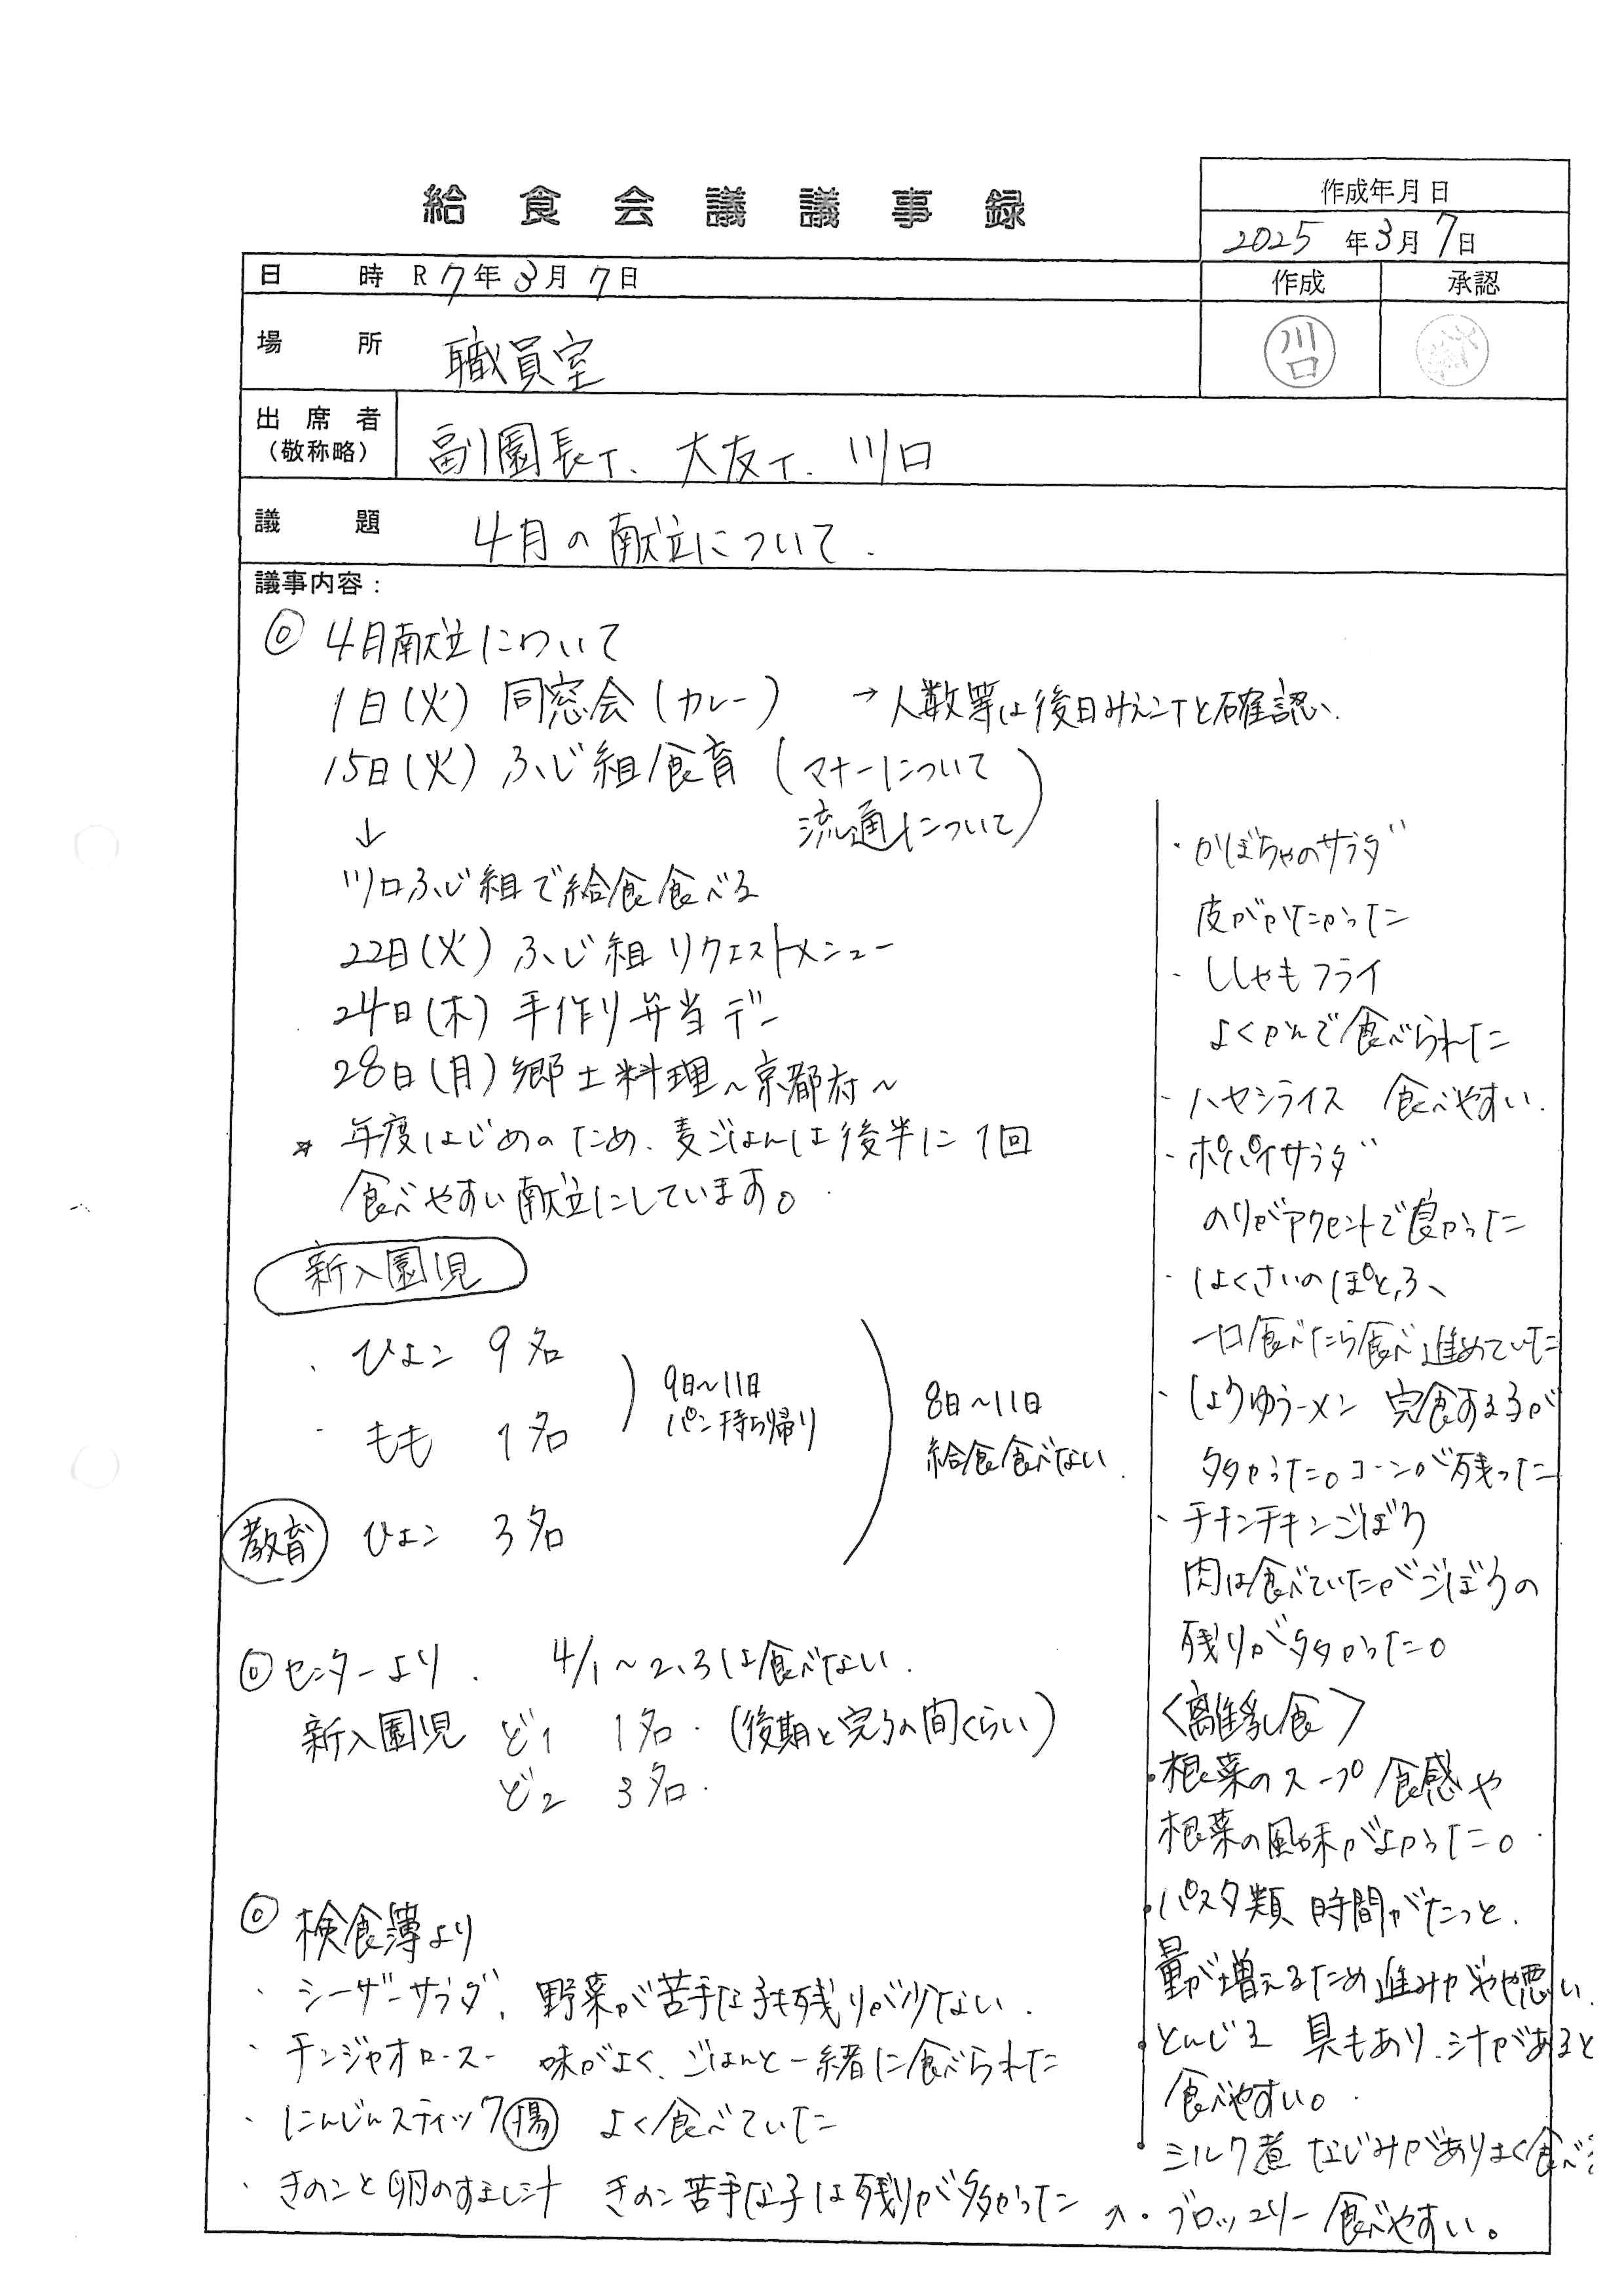 給食会議議事録
作成年月日
2025年3月7日
作成 承認
川口
日時 R7年3月7日
場所 職員室
出席者(敬称略) 副園長T、大友T、川口
議題 4月の献立について.
議事内容:
◎ 4月献立について
1日(火) 同窓会(カレー) →人数等は後日みえこTと確認、
15日(火) ふじ組食育(マナーについて
流通について)
↓
川口ふじ組で給食食べる
22日(火) ふじ組リクエストメニュー
24日(木) 手作り弁当デー
28日(月) 郷土料理~京都府~
* 年度はじめのため、麦ごはんは後半に1回
食べやすい献立にしています。
新入園児
・ひよこ 9名
・もも 1名
9日~11日
パン持ち帰り
8日~11日
給食食べない
教育 ひよこ 3名
◎センターより. 4/1~2、3は食べない.
新入園児 ど1 1名.(後期と完了の間くらい)
ど2 3名.
◎ 検食簿より
・シーザーサラダ、野菜が苦手な子も残りが少ない.
・チンジャオロースー 味がよく、ごはんと一緒に食べられた
・にんじんスティック揚 よく食べていた
・きのこと卵のすまし汁 きのこ苦手な子は残りが多かった
・かぼちゃのサラダ
皮がかたかった
・ししゃもフライ
よくかんで食べられた
・ハヤシライス 食べやすい.
・ポパイサラダ
のりがアクセントで良かった
・はくさいのぽとふ、
一口食べたら食べ進めていた
・しょうゆラーメン 完食する子が
多かった。コーンが残った
・チキンチキンごぼう
肉は食べていたがごぼうの
残りが多かった。
<離乳食>
・根菜のスープ 食感や
根菜の風味がよかった。
・パスタ類 時間がたつと、
量が増えるため進みがやや悪い.
・とんじる 具もあり、汁があると
食べやすい。
・ミルク煮 なじみがありよく食べ
・ブロッコリー 食べやすい。